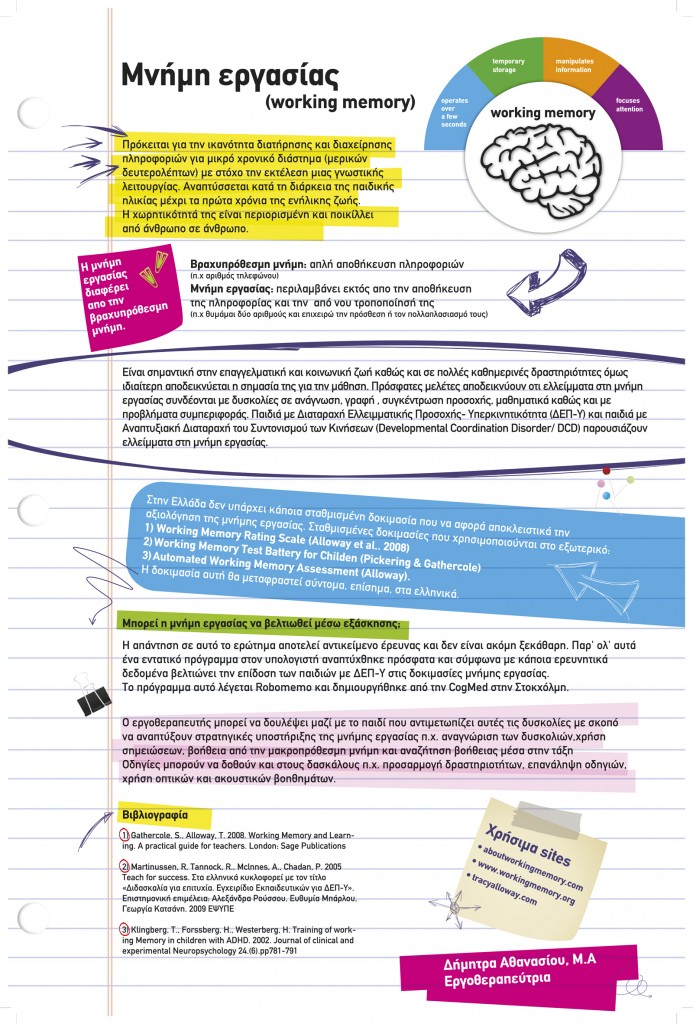 Μνήμη εργασίας
(working memory)
operates
over
a few
seconds
temporary
storage
manipulates
information
focuses
attention
working memory
Πρόκειται για την ικανότητα διατήρησης και διαχείρησης
πληροφοριών για μικρό χρονικό διάστημα (μερικών
δευτερολέπτων) με στόχο την εκτέλεση μιας γνωστικής
λειτουργίας. Αναπτύσσεται κατά τη διάρκεια της παιδικής
ηλικίας μέχρι τα πρώτα χρόνια της ενήλικης ζωής.
Η χωρητικότητά της είναι περιορισμένη και ποικίλλει
από άνθρωπο σε άνθρωπο.
Η μνήμη
εργασίας
διαφέρει
απο την
βραχυπρόθεσμη
μνήμη.
Βραχυπρόθεσμη μνήμη: απλή αποθήκευση πληροφοριών
(π.χ αριθμός τηλεφώνου)
Μνήμη εργασίας: περιλαμβάνει εκτός απο την αποθήκευση
της πληροφορίας και την από νου τροποποίησή της
(π.χ θυμάμαι δύο αριθμούς και επιχειρώ την πρόσθεση ή τον πολλαπλασιασμό τους)
Είναι σημαντική στην επαγγελματική και κοινωνική ζωή καθώς και σε πολλές καθημερινές δραστηριότητες όμως
ιδιαίτερη αποδεικνύεται η σημασία της για την μάθηση. Πρόσφατες μελέτες αποδεικνύουν οτι ελλείματα στη μνήμη
εργασίας συνδέονται με δυσκολίες σε ανάγνωση, γραφή , συγκέντρωση προσοχής, μαθηματικά καθώς και με
προβλήματα συμπεριφοράς. Παιδιά με Διαταραχή Ελλειμματικής Προσοχής- Υπερκινητικότητα (ΔΕΠ-Υ) και παιδιά με
Αναπτυξιακή Διαταραχή του Συντονισμού των Κινήσεων (Developmental Coordination Disorder/ DCD) παρουσιάζουν
ελλείματα στη μνήμη εργασίας.
Στην Ελλάδα δεν υπάρχει κάποια σταθμισμένη δοκιμασία που να αφορά αποκλειστικά την
αξιολόγηση της μνήμης εργασίας. Σταθμισμένες δοκιμασίες που χρησιμοποιούνται στο εξωτερικό:
1) Working Memory Rating Scale (Alloway et al., 2008)
2) Working Memory Test Battery for Childen (Pickering & Gathercole)
3) Automated Working Memory Assessment (Alloway).
Η δοκιμασία αυτή θα μεταφραστεί σύντομα, επίσημα, στα ελληνικά.
Μπορεί η μνήμη εργασίας να βελτιωθεί μέσω εξάσκησης;
Η απάντηση σε αυτό το ερώτημα αποτελεί αντικείμενο έρευνας και δεν είναι ακόμη ξεκάθαρη. Παρ' ολ' αυτά
ένα εντατικό πρόγραμμα στον υπολογιστή αναπτύχθηκε πρόσφατα και σύμφωνα με κάποια ερευνητικά
δεδομένα βελτιώνει την επίδοση των παιδιών με ΔΕΠ-Υ στις δοκιμασίες μνήμης εργασίας.
Το πρόγραμμα αυτό λέγεται Robomemo και δημιουργήθηκε από την CogMed στην Στοκχόλμη.
Ο εργοθεραπευτής μπορεί να δουλέψει μαζί με το παιδί που αντιμετωπίζει αυτές τις δυσκολίες με σκοπό
να αναπτύξουν στρατηγικές υποστήριξης της μνήμης εργασίας π.χ. αναγνώριση των δυσκολιών,χρήση
σημειώσεων, βοήθεια από την μακροπρόθεσμη μνήμη και αναζήτηση βοήθειας μέσα στην τάξη
Οδηγίες μπορούν να δοθούν και στους δασκάλους π.χ. προσαρμογή δραστηριοτήτων, επανάληψη οδηγιών,
χρήση οπτικών και ακουστικών βοηθημάτων.
Βιβλιογραφία
1) Gathercole, S., Alloway, T. 2008. Working Memory and Learn-
ing. A practical guide for teachers. London: Sage Publications
2) Martinussen, R, Tannock, R., McInnes, A., Chadan, P. 2005
Teach for success. Στα ελληνικά κυκλοφορεί με τον τίτλο
«Διδασκαλία για επιτυχία. Εγχειρίδιο Εκπαιδευτικών για ΔΕΠ-Υ».
Επιστημονική επιμέλεια: Αλεξάνδρα Ρούσσου, Ευθυμία Μπάρλου,
Γεωργία Κατσάνη. 2009 ΕΨΥΠΕ
3) Klingberg, T., Forssberg, H., Westerberg, H. Training of work-
ing Memory in children with ADHD. 2002. Journal of clinical and
experimental Neuropsychology 24.(6).pp781-791
Χρήσιμα sites
• aboutworkingmemory.com
• www.workingmemory.org
• tracyalloway.com
Δήμητρα Αθανασίου, M.A
Εργοθεραπεύτρια